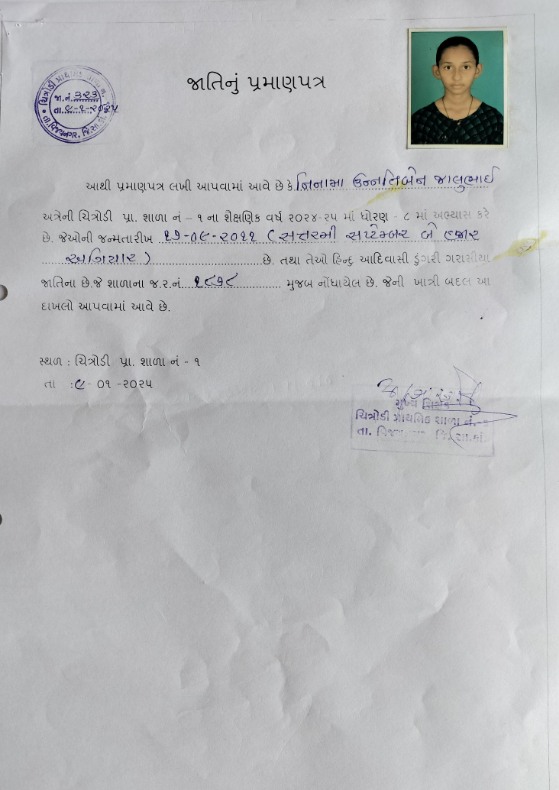 જાતિનું પ્રમાણપત્ર
જા.નં. ૩૨૩
તા. ૯-૧-૨૦૨૫
આથી પ્રમાણપત્ર લખી આપવામાં આવે છે કે નિનામા ઉન્નતિબેન જાલુભાઈ
અત્રેની ચિત્રોડી પ્રા. શાળા નં - ૧ ના શૈક્ષણિક વર્ષ ૨૦૨૪-૨૫ માં ધોરણ - ૮ માં અભ્યાસ કરે
છે. જેઓની જન્મતારીખ ૧૭-૦૯-૨૦૧૧ ( સત્તરમી સપ્ટેમ્બર બે હજાર
અગિયાર ) છે. તથા તેઓ હિન્દુ આદિવાસી ડુંગરી ગરાસીયા
જાતિના છે.જે શાળાના જ.ર.નં ૧૮૭૮ મુજબ નોંધાયેલ છે. જેની ખાત્રી બદલ આ
દાખલો આપવામાં આવે છે.
સ્થળ : ચિત્રોડી પ્રા. શાળા નં - ૧
તા : ૯- ૦૧ -૨૦૨૫
મુખ્ય શિક્ષક
ચિત્રોડી પ્રાથમિક શાળા નં.